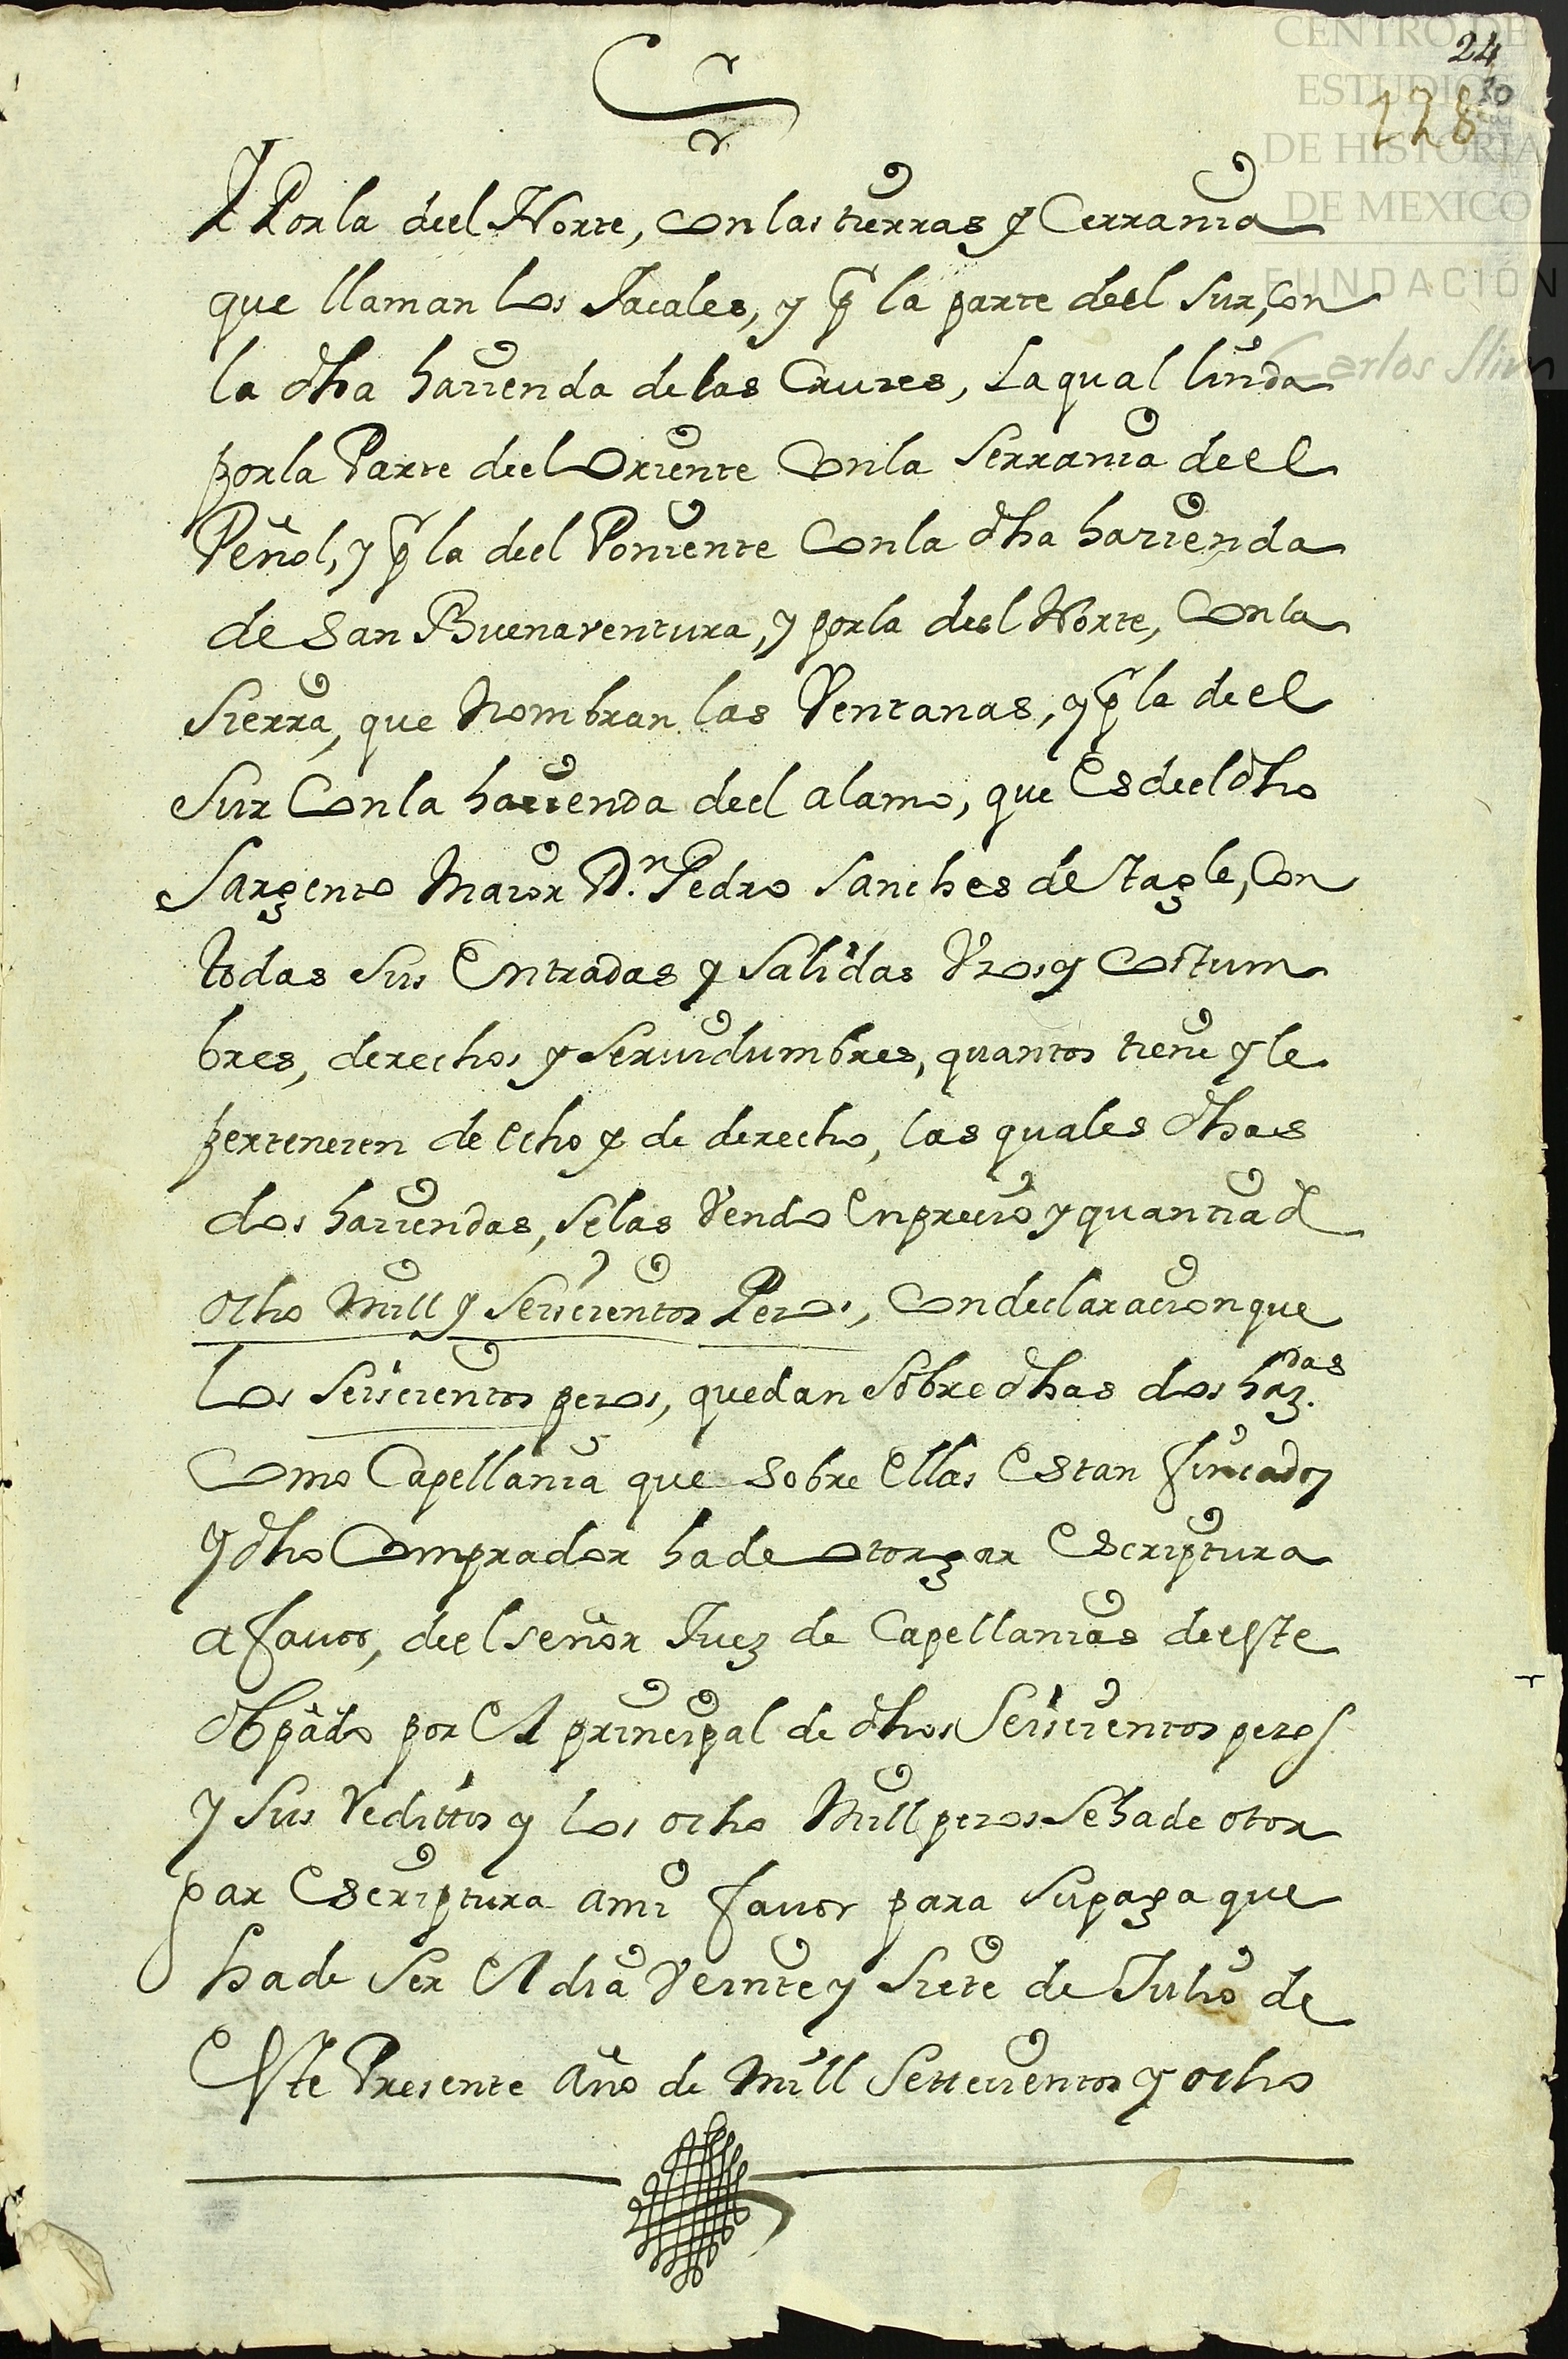 CENTRO DE
ESTUDIOS
DE HISTORIA
DE MEXICO
FUNDACIÓN
Carlos Slim
24
30
178
Y Por la deel Norte, con las tierras y Cerrania
que llaman los Jacales, y p la parte deel Sur, con
la dha hazienda de las Cruzes, La qual linda
por la Parte deel Oriente Con la Serrania deel
Peñol, y p la deel Poniente Con la dha hazienda
de San Buenaventura, y por la deel Norte, Con la
Sierra, que Nombran las Ventanas, y p la deel
Sur Con la hazienda deel alamo, que Es deel dho
Sargento Maior Dn. Pedro Sanches de Tagle, Con
todas sus Entradas y Salidas Vsos y Costum
bres, derechos y Seruidumbres, quantos tiene y le
pertenezen de echo y de derecho, las quales dhas
dos haziendas, Se las Vendo En precio y quantia d
ocho Mill y Seiscientos Pezos, Con declaracion que
los Seiscientos pezos, quedan Sobre dhas dos haz.das
Como Capellania que sobre Ellas Estan fincados
Y dho Comprador ha de otorgar Escriptura
a fauor, deel señor Juez de Capellanias de este
Obpâdo por El principal de dhos Seiscientos pezos
y Sus Redittos y los ocho Mill pezos Se ha de otor
gar Escriptura a mi fauor para Su paga que
ha de Ser El dia Veinte y Siete de Julio de
Este Presente año de Mill Settecientos y ocho